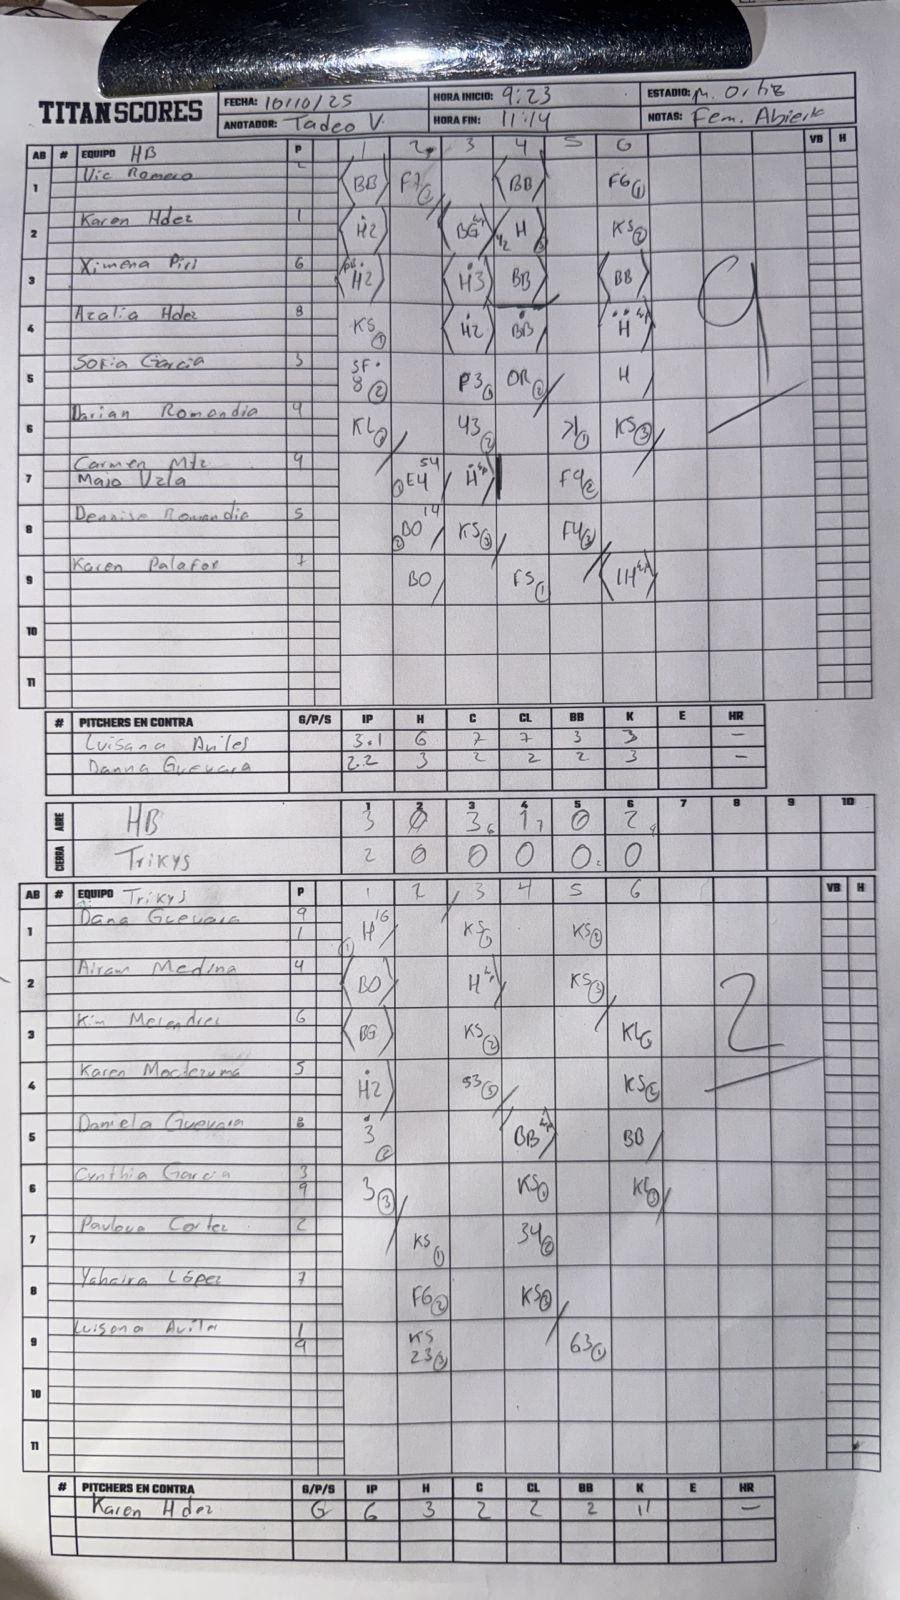 TITAN SCORES
FECHA: 10/10/25 HORA INICIO: 9:23 ESTADIO: M. Ortiz
ANOTADOR: Tadeo V. HORA FIN: 11:14 NOTAS: Fem. Abierta
AB # EQUIPO HB P 1 2 3 4 5 6 VB H
1 Vic Romero 2 BB F7① BB F6①
2 Karen Hdez 1 H2 BG H ③ KS②
3 Ximena 6 H2 H3 BB BB
4 Azalia Hdez 8 KS① H2 BB H
5 Sofia Garcia 3 SF 8② P3① OR② H
6 Darian Romandia 4 KL③ 43② ① KS③
7 Carmen Mtz 4 54 ①E4 H F9②
Majo Vzla
8 Dennise Romandia 5 14 ②BO KS③ F4③
9 Karen Palafox 7 BO F5① 1H
10
11
9
# PITCHERS EN CONTRA G/P/S IP H C CL BB K E HR
Luisana Aviles 3.1 6 7 7 3 3 –
Danna Guevara 2.2 3 2 2 2 3 –
1 2 3 4 5 6 7 8 9 10
ABRE HB 3 0 3 6 1 7 0 2 9
CIERRA Trikys 2 0 0 0 0 0
AB # EQUIPO Trikys P 1 2 3 4 5 6 VB H
1 Dana Guevara 9 1 16 ① H KS① KS②
2 Airam Medina 4 BO H KS③
3 Kim Melendrez 6 BG KS② KL①
4 Karen Moctezuma 5 H2 53③ KS②
5 Daniela Guevara 8 3② BB BB
6 Cynthia Garcia 3 9 3③ KS① KL③
7 Pavlova Cortez 2 KS① 34②
8 Yahaira López 7 F6② KS③
9 Luisana 1 9 KS 23③ 63①
10
11
2
# PITCHERS EN CONTRA G/P/S IP H C CL BB K E HR
Karen Hdez G 6 3 2 2 2 11 –